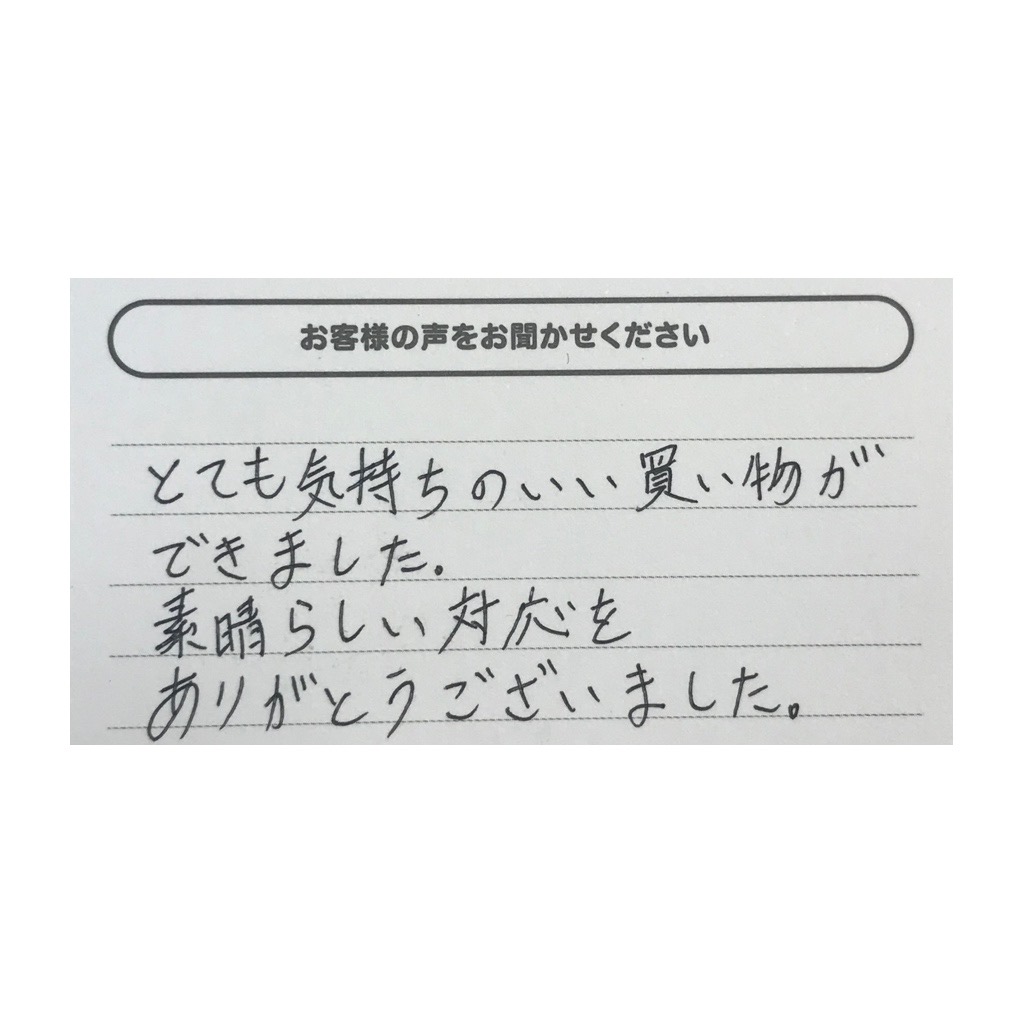 お客様の声をお聞かせください
とても気持ちのいい買い物が
できました。
素晴らしい対応を
ありがとうございました。